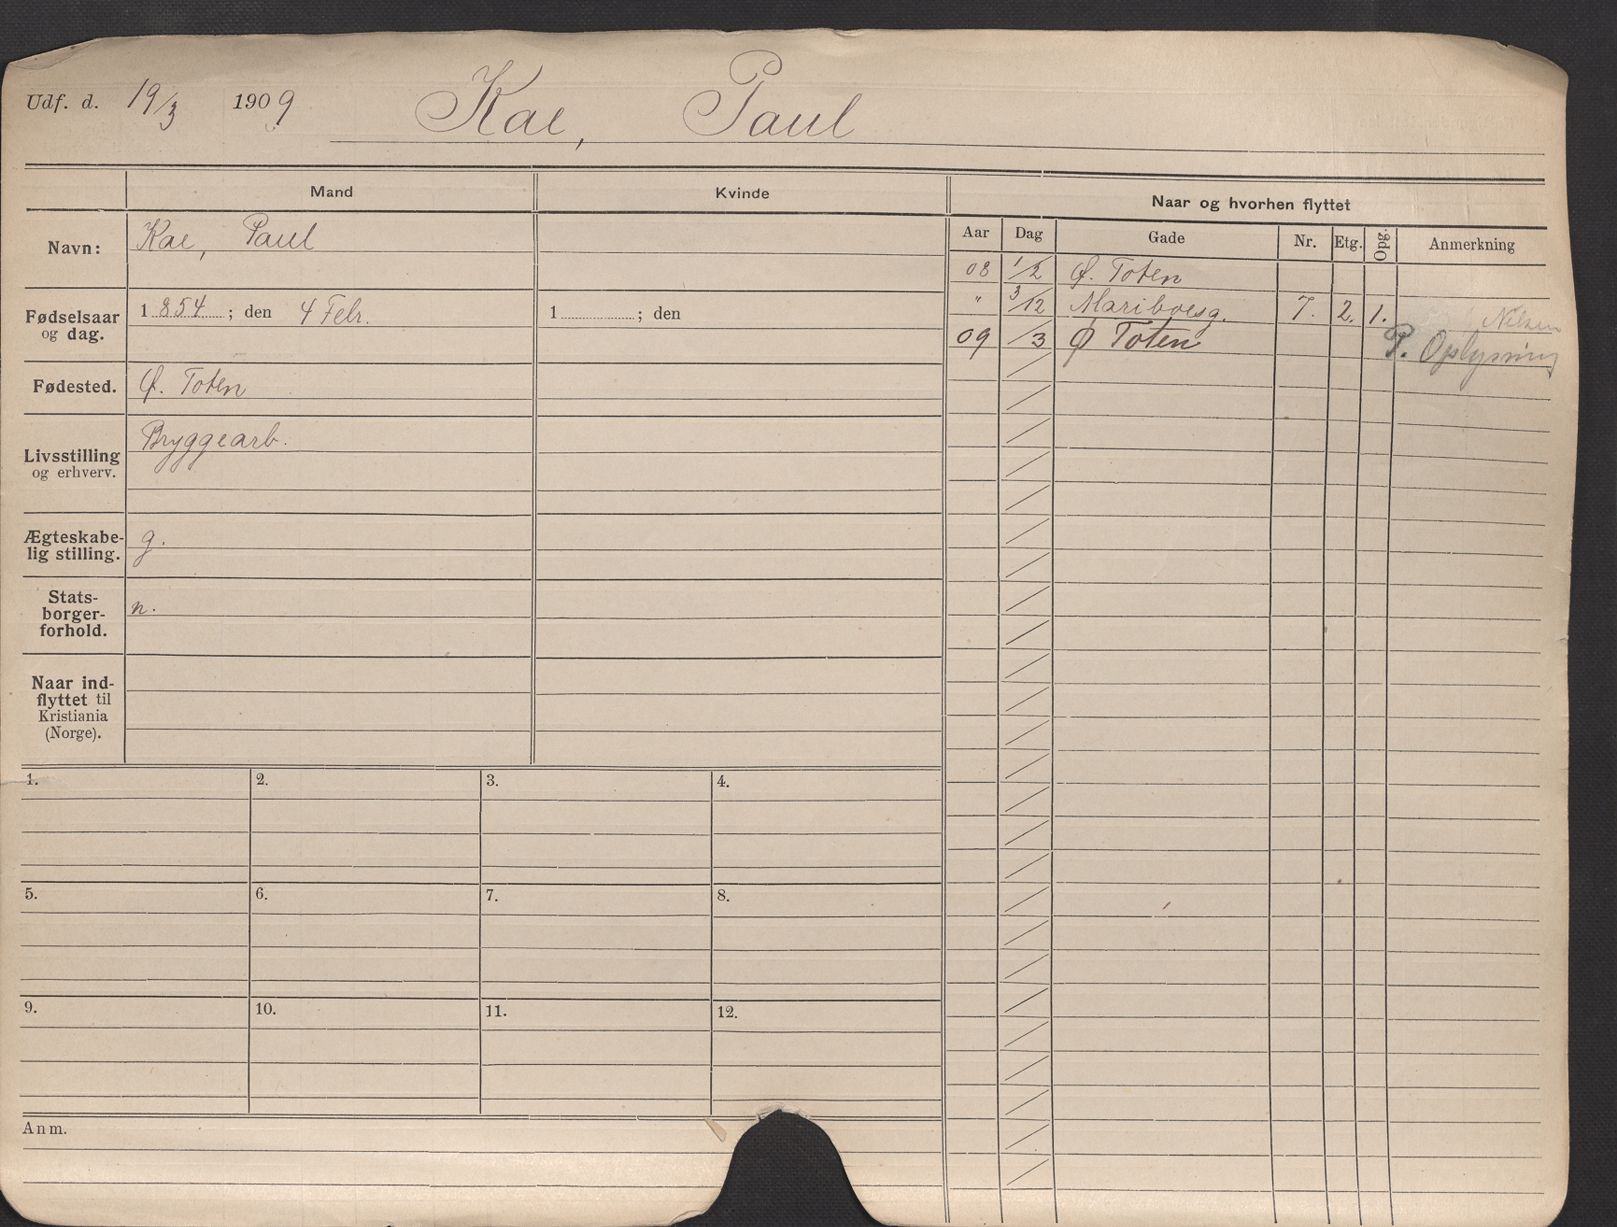 Udf. d. 19/3 1909 Kae, Paul
Mand Kvinde Naar og hvorhen flyttet
Navn: Kae, Paul
Fødselsaar og dag. 1854; den 4 Febr. 1 ; den
Fødested. Ø. Toten
Livsstilling og erhverv. Bryggearb.
Ægteskabe-
lig stilling. g.
Stats-
borger-
forhold. n.
Naar ind-
flyttet til
Kristiania
(Norge).
Aar Dag Gade Nr. Etg. Opg. Anmerkning
08 1/2 Ø. Toten
" 3/12 Mariboesg. 7. 2. 1. Nilsen
09 /3 Ø Toten P. Oplysning
1. 2. 3. 4.
5. 6. 7. 8.
9. 10. 11. 12.
Anm.